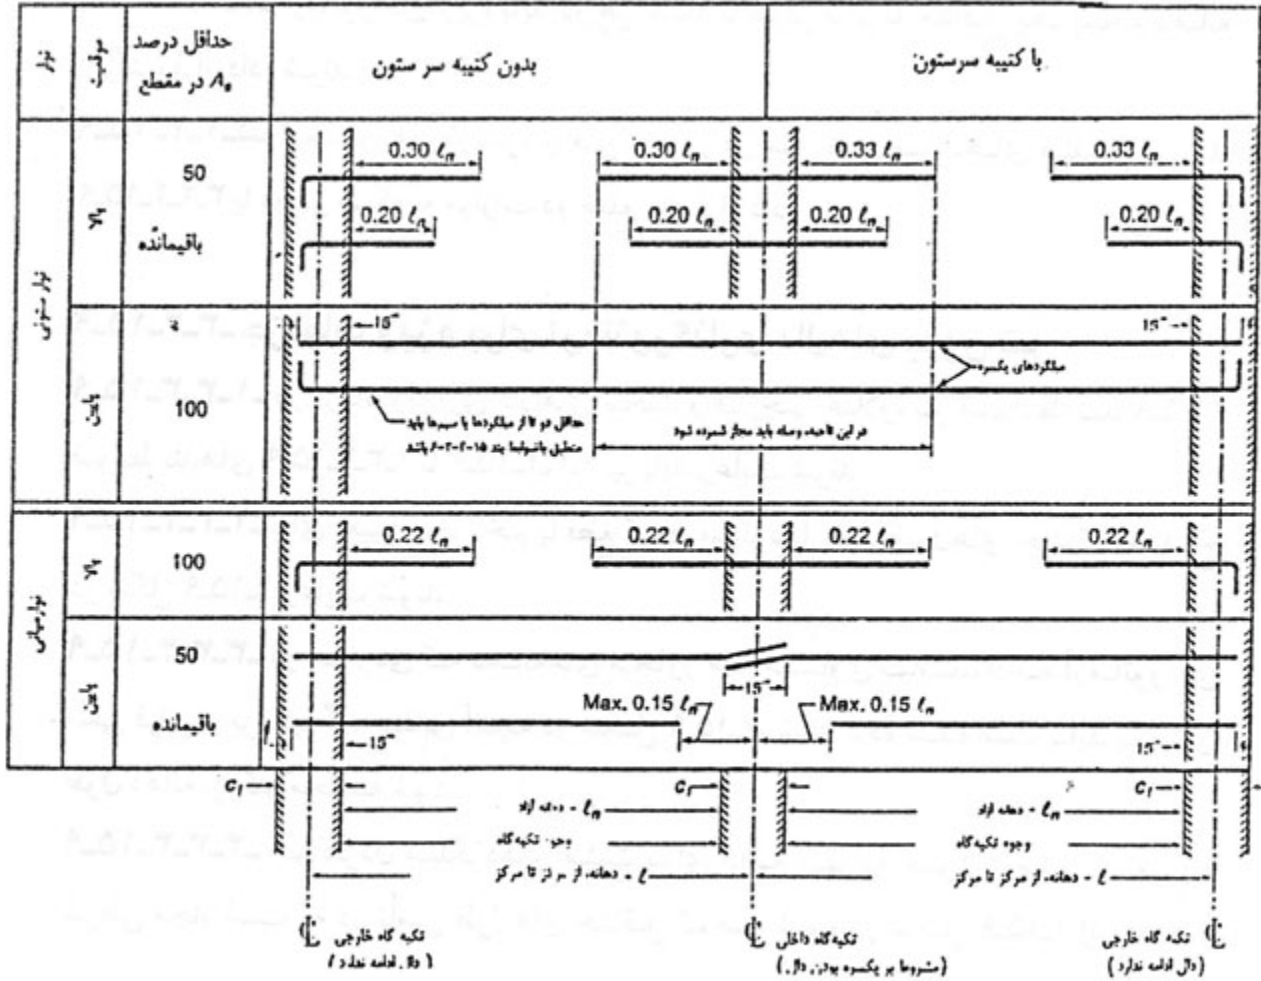 نوار
موقعیت
حداقل درصد
Aₛ در مقطع
بدون کتیبه سر ستون
با کتیبه سرستون
نوار ستونی
بالا
50
0.30 ℓn
0.30 ℓn
0.33 ℓn
0.33 ℓn
باقیمانده
0.20 ℓn
0.20 ℓn
0.20 ℓn
0.20 ℓn
پائین
100
15
15
میلگردهای یکسره
حداقل دو تا از میلگردها یا سیم‌ها باید
منطبق باضوابط بند باشد
در این ناحیه، وصله باید مجاز شمرده شود
نوار میانی
بالا
100
0.22 ℓn
0.22 ℓn
0.22 ℓn
0.22 ℓn
پائین
50
15
باقیمانده
Max. 0.15 ℓn
Max. 0.15 ℓn
15
15
C₁
C₁
C₁
ℓn - دهانه آزاد
ℓn - دهانه آزاد
وجوه تکیه‌گاه
وجوه تکیه‌گاه
ℓ - دهانه، از مرکز تا مرکز
ℓ - دهانه، از مرکز تا مرکز
تکیه گاه خارجی ℄
(دال ادامه ندارد)
تکیه‌گاه داخلی ℄
(مشروط بر یکسره بودن دال)
تکیه گاه خارجی ℄
(دال ادامه ندارد)